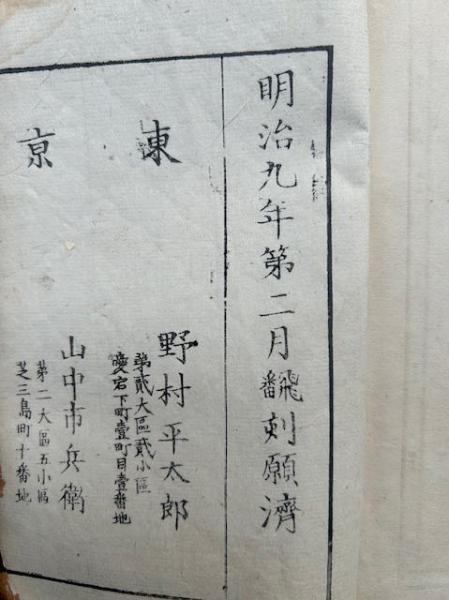 明治九年第二月飜刻願濟
東亰
野村平太郎
苐貳大區貳小區
愛宕下町壹町目壹番地
山中市兵衛
苐二大區五小區
芝三島町十番地